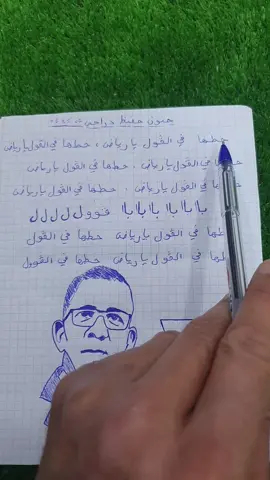 جنون حفيظ دراجي
حطها في القول يا رياض ، حطها في القول يا رياض
حطها في القول يا رياض . حطها في القول يا رياض
حطها في القول يا رياض . حطها في القول يا رياض
يا با با با با با با قوول ل ل ل ل
حطها في القول يا رياض حطها في القول
حطها في القول يا رياض حطها في القوول